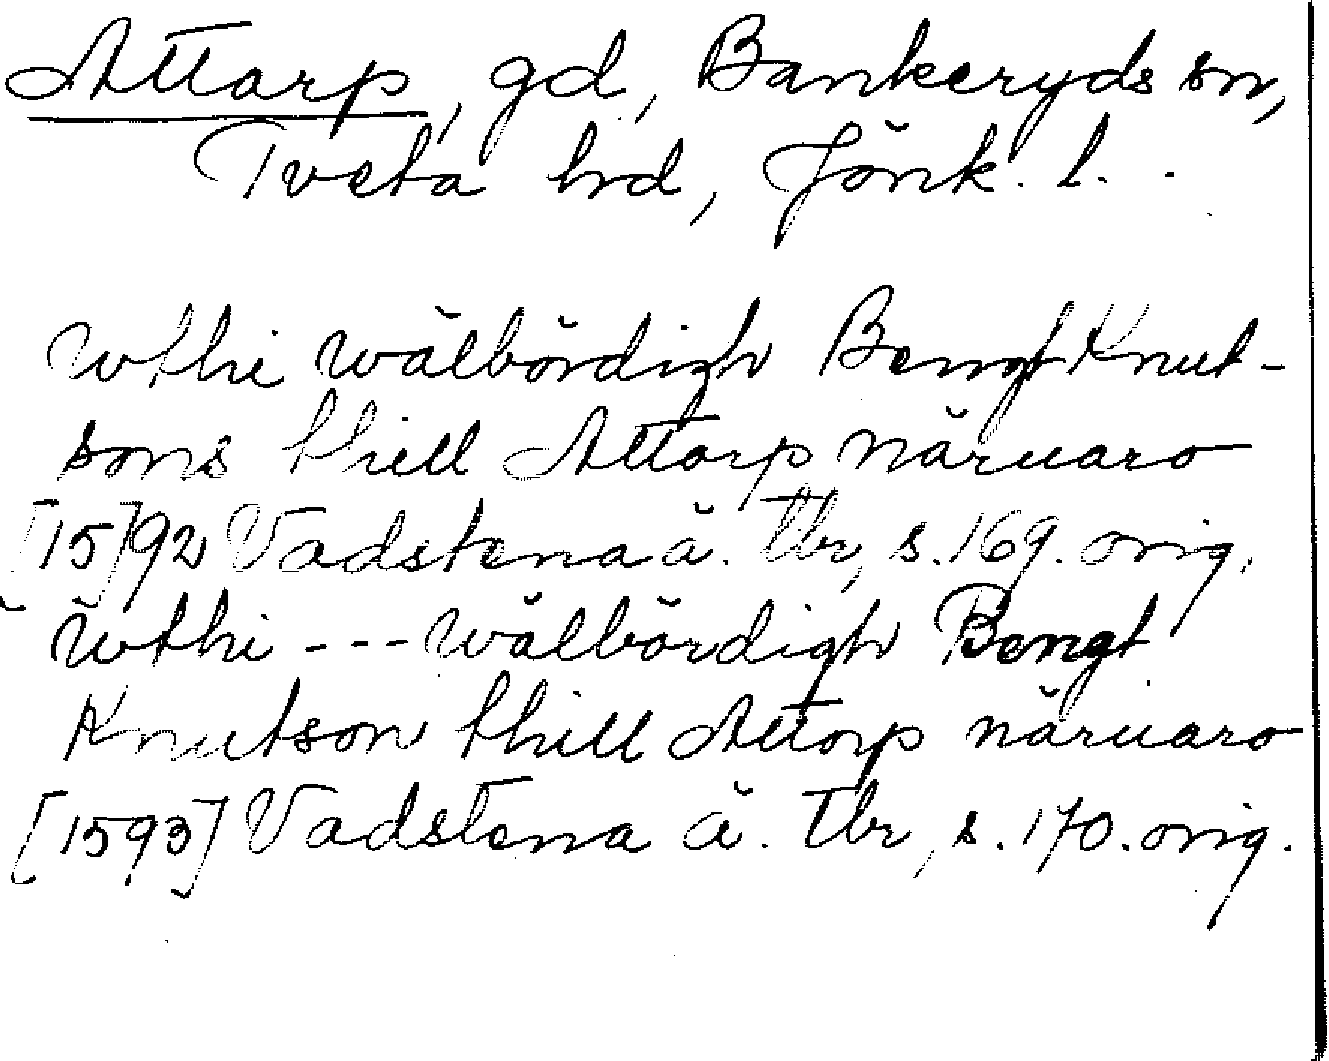 Attarp, gd, Bankeryds sn,
Tveta hrd, Jönk. l.
wthi wälbördigh Bengt Knut-
sons thill Attarp näruaro
[15]92 Vadstena ä. tbr, s. 169. orig.
wthi --- wälbördigh Bengt
Knutson thill Attorp näruaro
[1593] Vadstena ä. tbr, s. 170. orig.